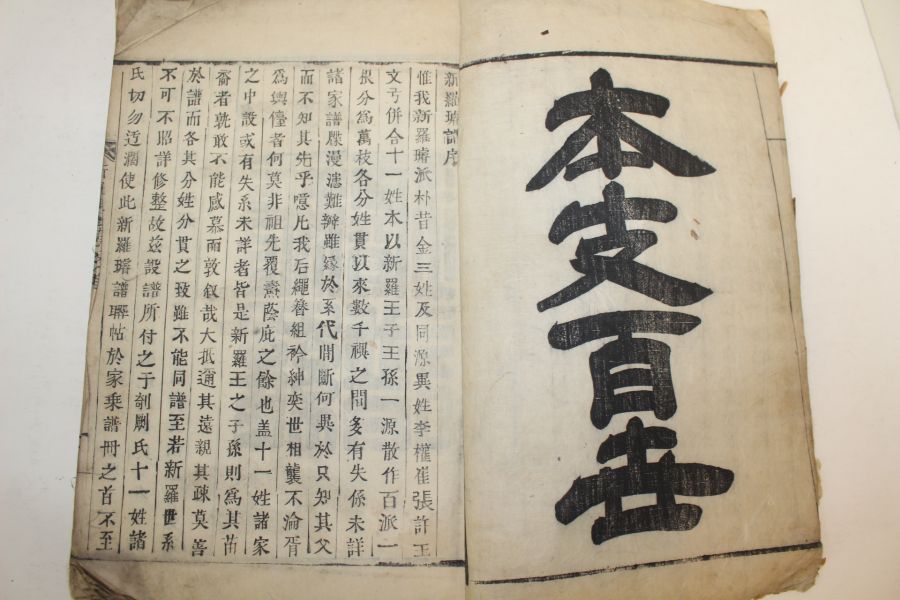 本支百世
新羅璿譜序
惟我新羅璿派朴昔金三姓及同源異姓李權崔張許王
文弓併合十一姓本以新羅王子王孫一源散作百派一
根分爲萬枝各分姓貫以來數千禩之間多有失係未詳
諸家譜牒漫漶難辨雖緣於系代間斷何異於只知其父
而不知其先乎噫凡我后繩替組衿紳奕世相襲不淪胥
爲輿儓者何莫非祖先覆燾蔭庇之餘也盖十一姓諸家
之中設或有失系未詳者皆是新羅王之子孫則爲其苗
裔者孰敢不能感慕而敦叙哉大抵通其遠親其疎莫善
於譜而各其分姓分貫之致雖不能同譜至若新羅世系
不可不照詳修整故玆設譜所付之于剞劂氏十一姓諸
氏切勿迃濶使此新羅璿譜聯帖於家乘譜冊之首不至